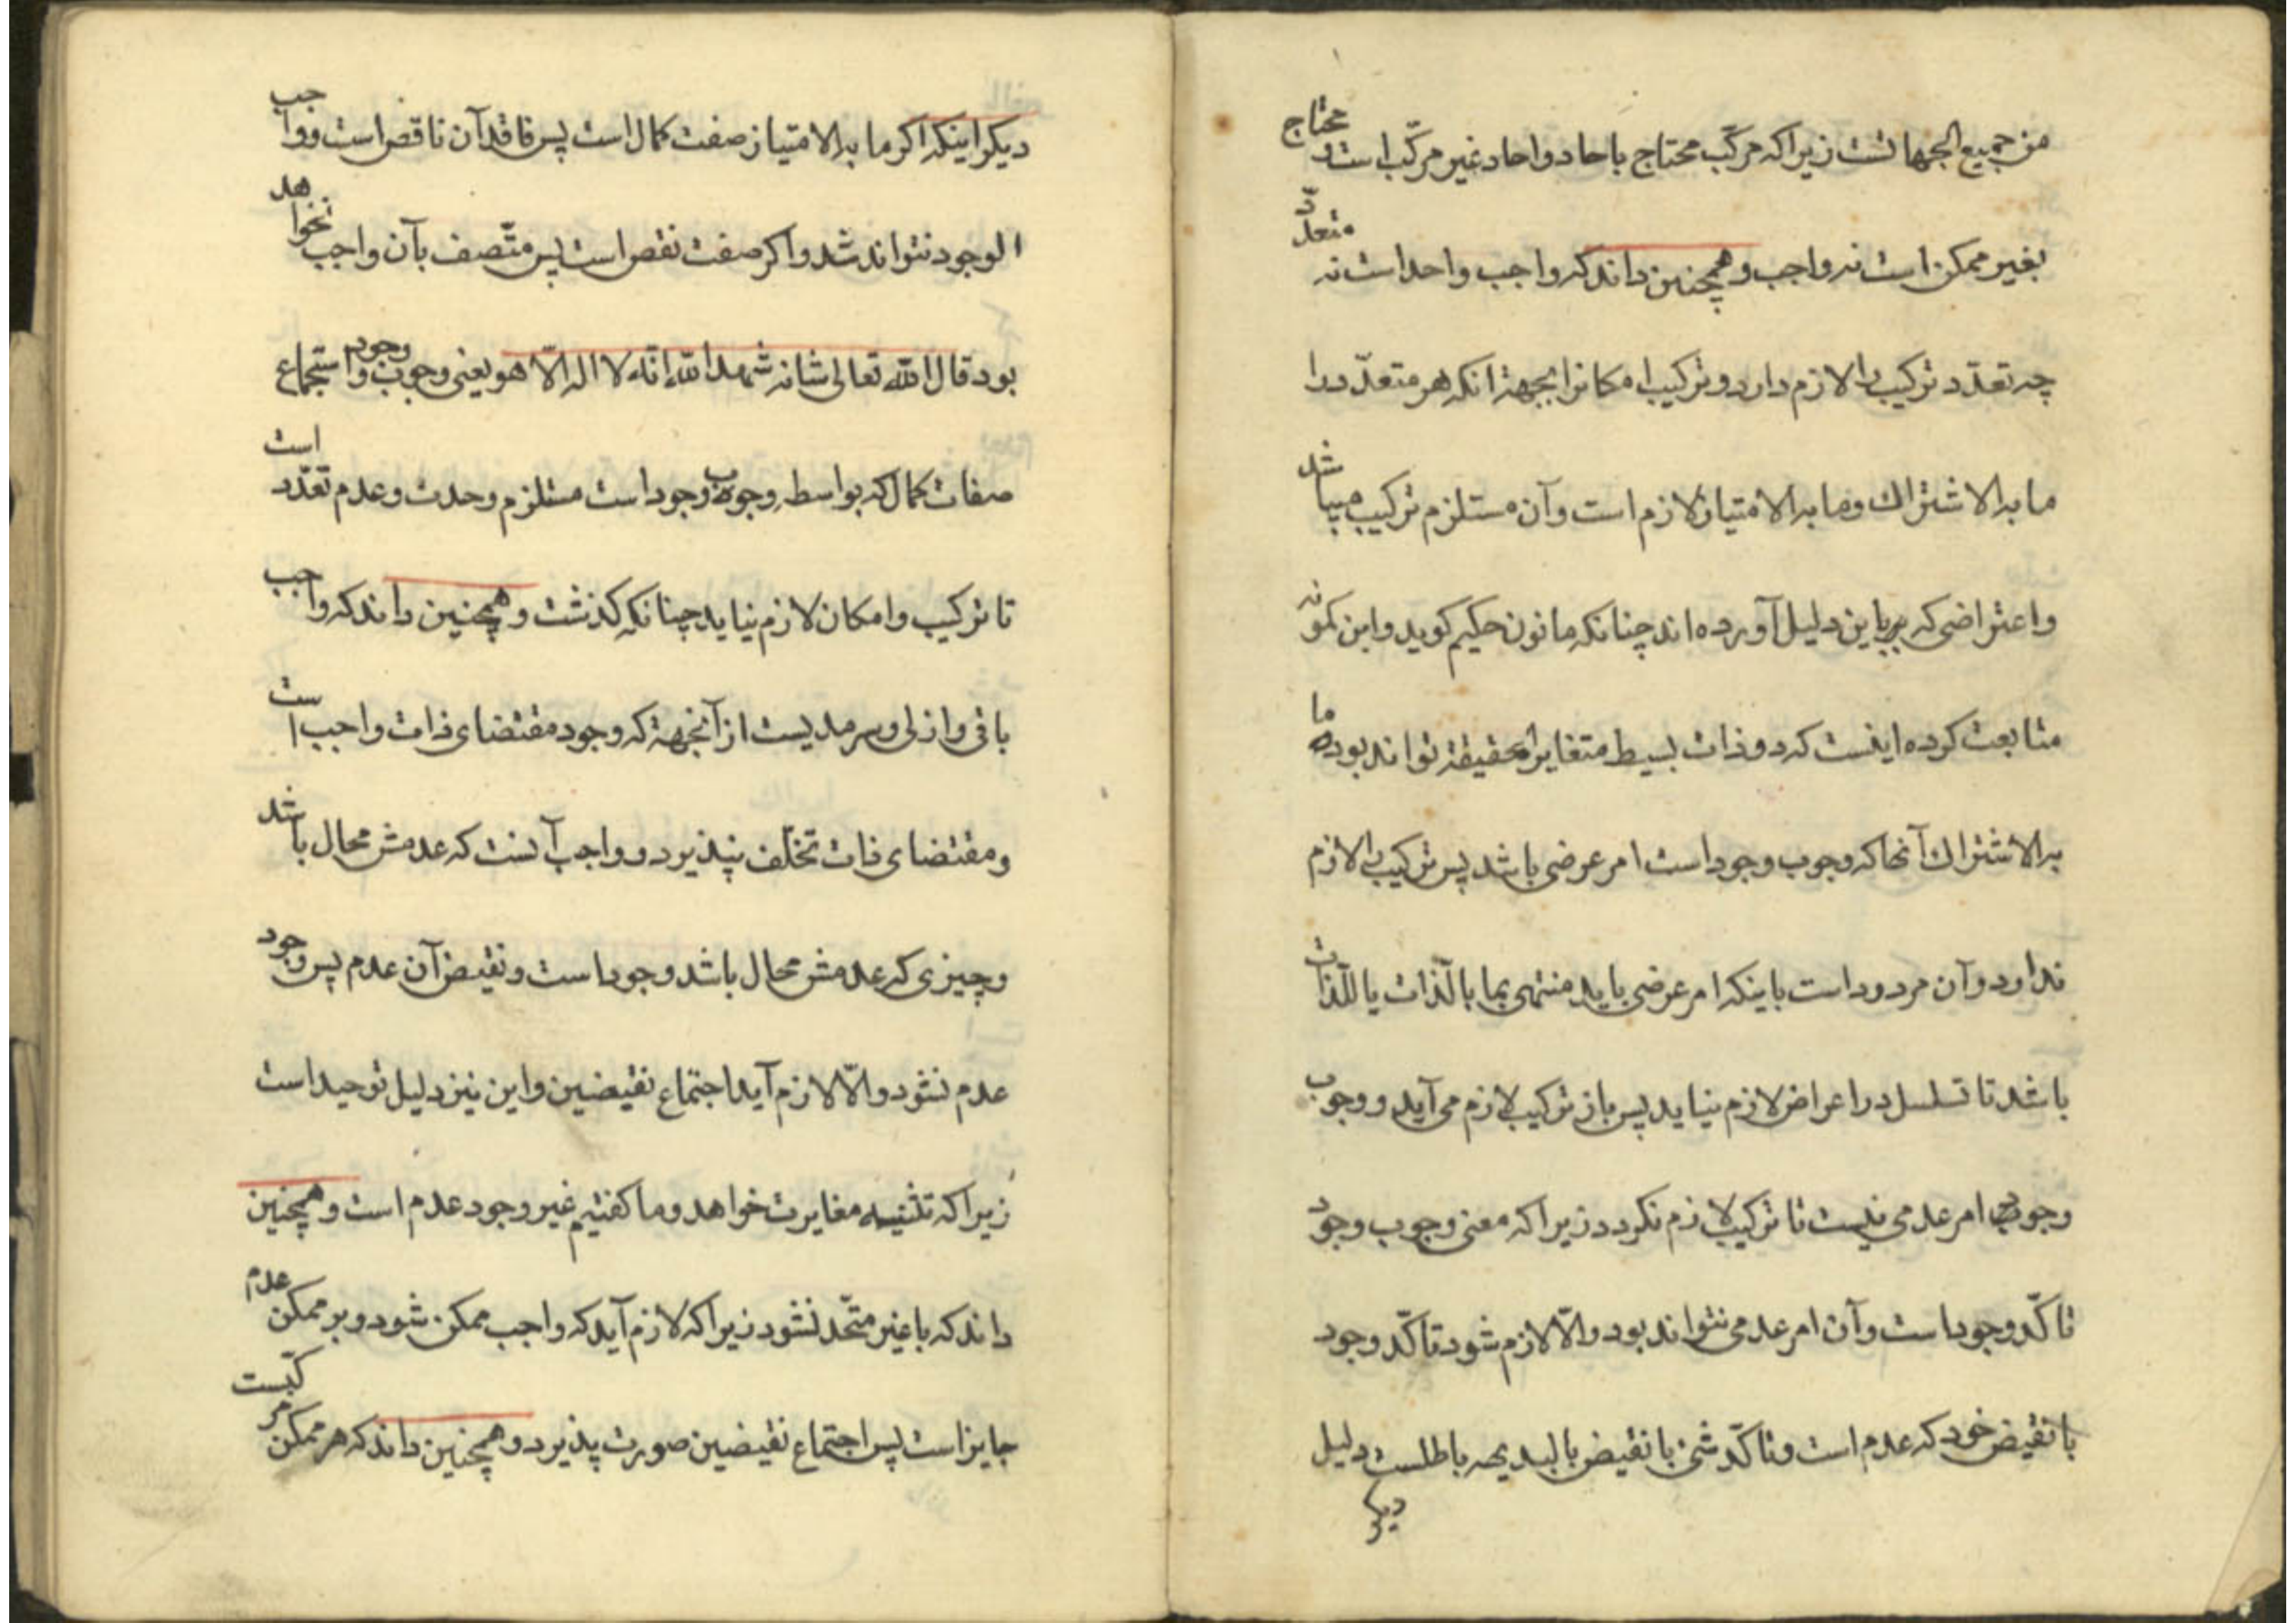 من جمیع الجهاتست زیرا که مرکّب محتاج باحاد و احاد غیر مرکّب است و محتاج
بغیر ممکن است نه واجب و همچنین داند که واجب واحد است نه متعدّد
چه تعدّد ترکیب را لازم دارد و ترکیب امکانرا بجهة آنکه هر متعدّد را
ما به الاشتراک و ما به الامتیاز لازم است و آن مستلزم ترکیب میباشد
و اعتراضی که برین دلیل آورده اند چنانکه مانون حکیم کوید و ابن کمونه
متابعت کرده اینست که دو ذات بسیط متغایر الحقیقة تواند بود که ما
به الاشتراک آنها که وجوب وجود است امر عرضی باشد پس ترکیب را لازم
ندارد و آن مردود است باینکه امر عرضی باید منتهی بما بالذات یا للذات
باشد تا تسلسل در اعراض لازم نیاید پس باز ترکیب لازم می آید و وجوب
وجود امر عدمی نیست تا ترکیب لازم نکردد زیرا که معنی وجوب وجود
تاکّد وجود است و آن امر عدمی نتواند بود و الّا لازم شود تاکّد وجود
با نقیض خود که عدم است و تاکّد شئ با نقیض بالبدیهه باطلست دلیل
دیکر
دیکر اینکه اکر ما به الامتیاز صفت کمال است پس فاقد آن ناقص است و واجب
الوجود نتواند شد و اکر صفت نقص است پس متّصف بآن واجب نخواهد
بود قال الله تعالی شانه شهد الله انّه لا اله الّا هو یعنی وجوب وجود و استجماع
صفات کمال که بواسطه وجوب وجود است مستلزم وحدت و عدم تعدّد است
تا ترکیب و امکان لازم نیاید چنانکه کذشت و همچنین داند که واجب
باقی و ازلی و سرمدیست از آنجهة که وجود مقتضای ذات واجب است
و مقتضای ذات تخلّف نپذیرد و واجب آنست که عدمش محال باشد
و چیزی که عدمش محال باشد وجود است و نقیض آن عدم پس وجود
عدم نشود و الّا لازم آید اجتماع نقیضین و این نیز دلیل توحید است
زیرا که تثنیه مغایرت خواهد و ما کفتیم غیر وجود عدم است و همچنین
داند که با غیر متّحد نشود زیرا که لازم آید که واجب ممکن شود و بر ممکن عدم
جایز است پس اجتماع نقیضین صورت پذیرد و همچنین داند که هر ممکن مرکّبست